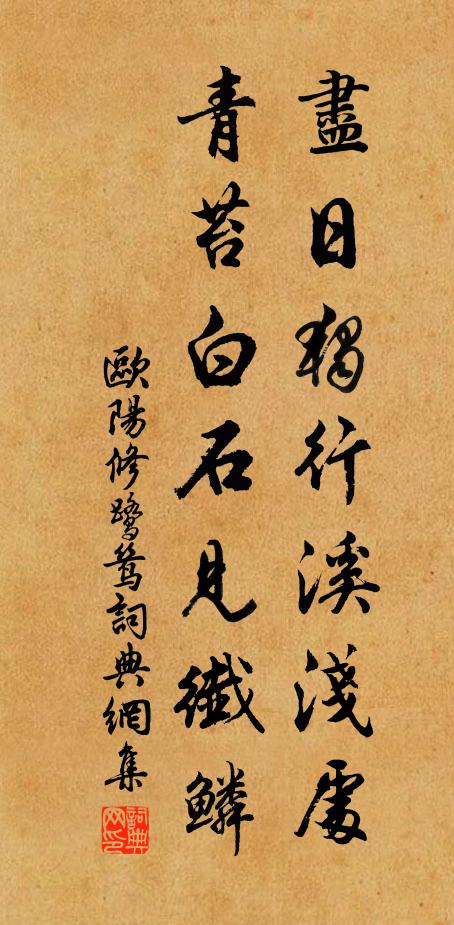 盡日獨行溪淺處
青苔白石見纖鱗
歐陽修鷺鷥詞典網集
詞典
网印